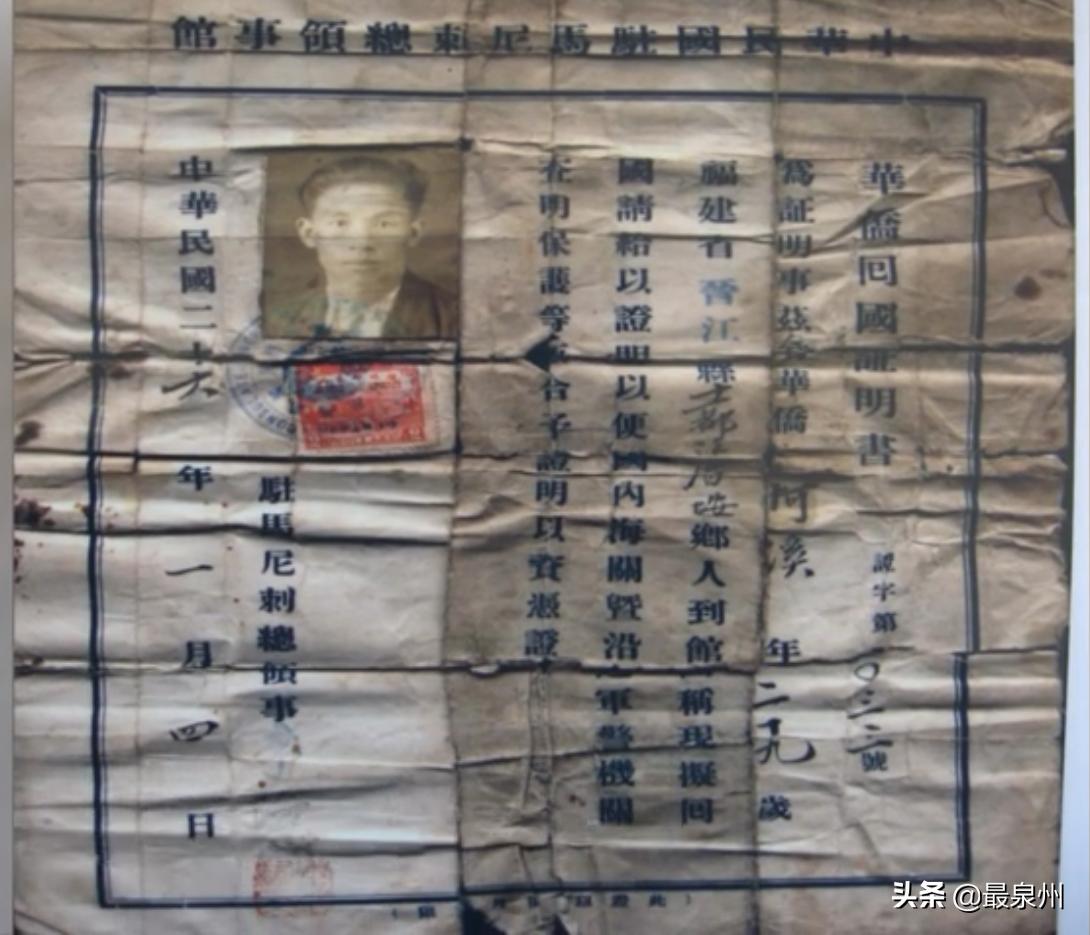 中華民國駐馬尼剌總領事館
華僑囘國証明書
證字第一〇三二二號
為証明事茲參華僑 阿溪 年二十九歲
福建省晉江縣 鄉人到館稱現擬囘
國請給以證明以便國內海關暨沿 軍警機關
在明保護等 合予證明以資憑證
駐馬尼剌總領事
中華民國二十六年一月四日
頭条 @最泉州